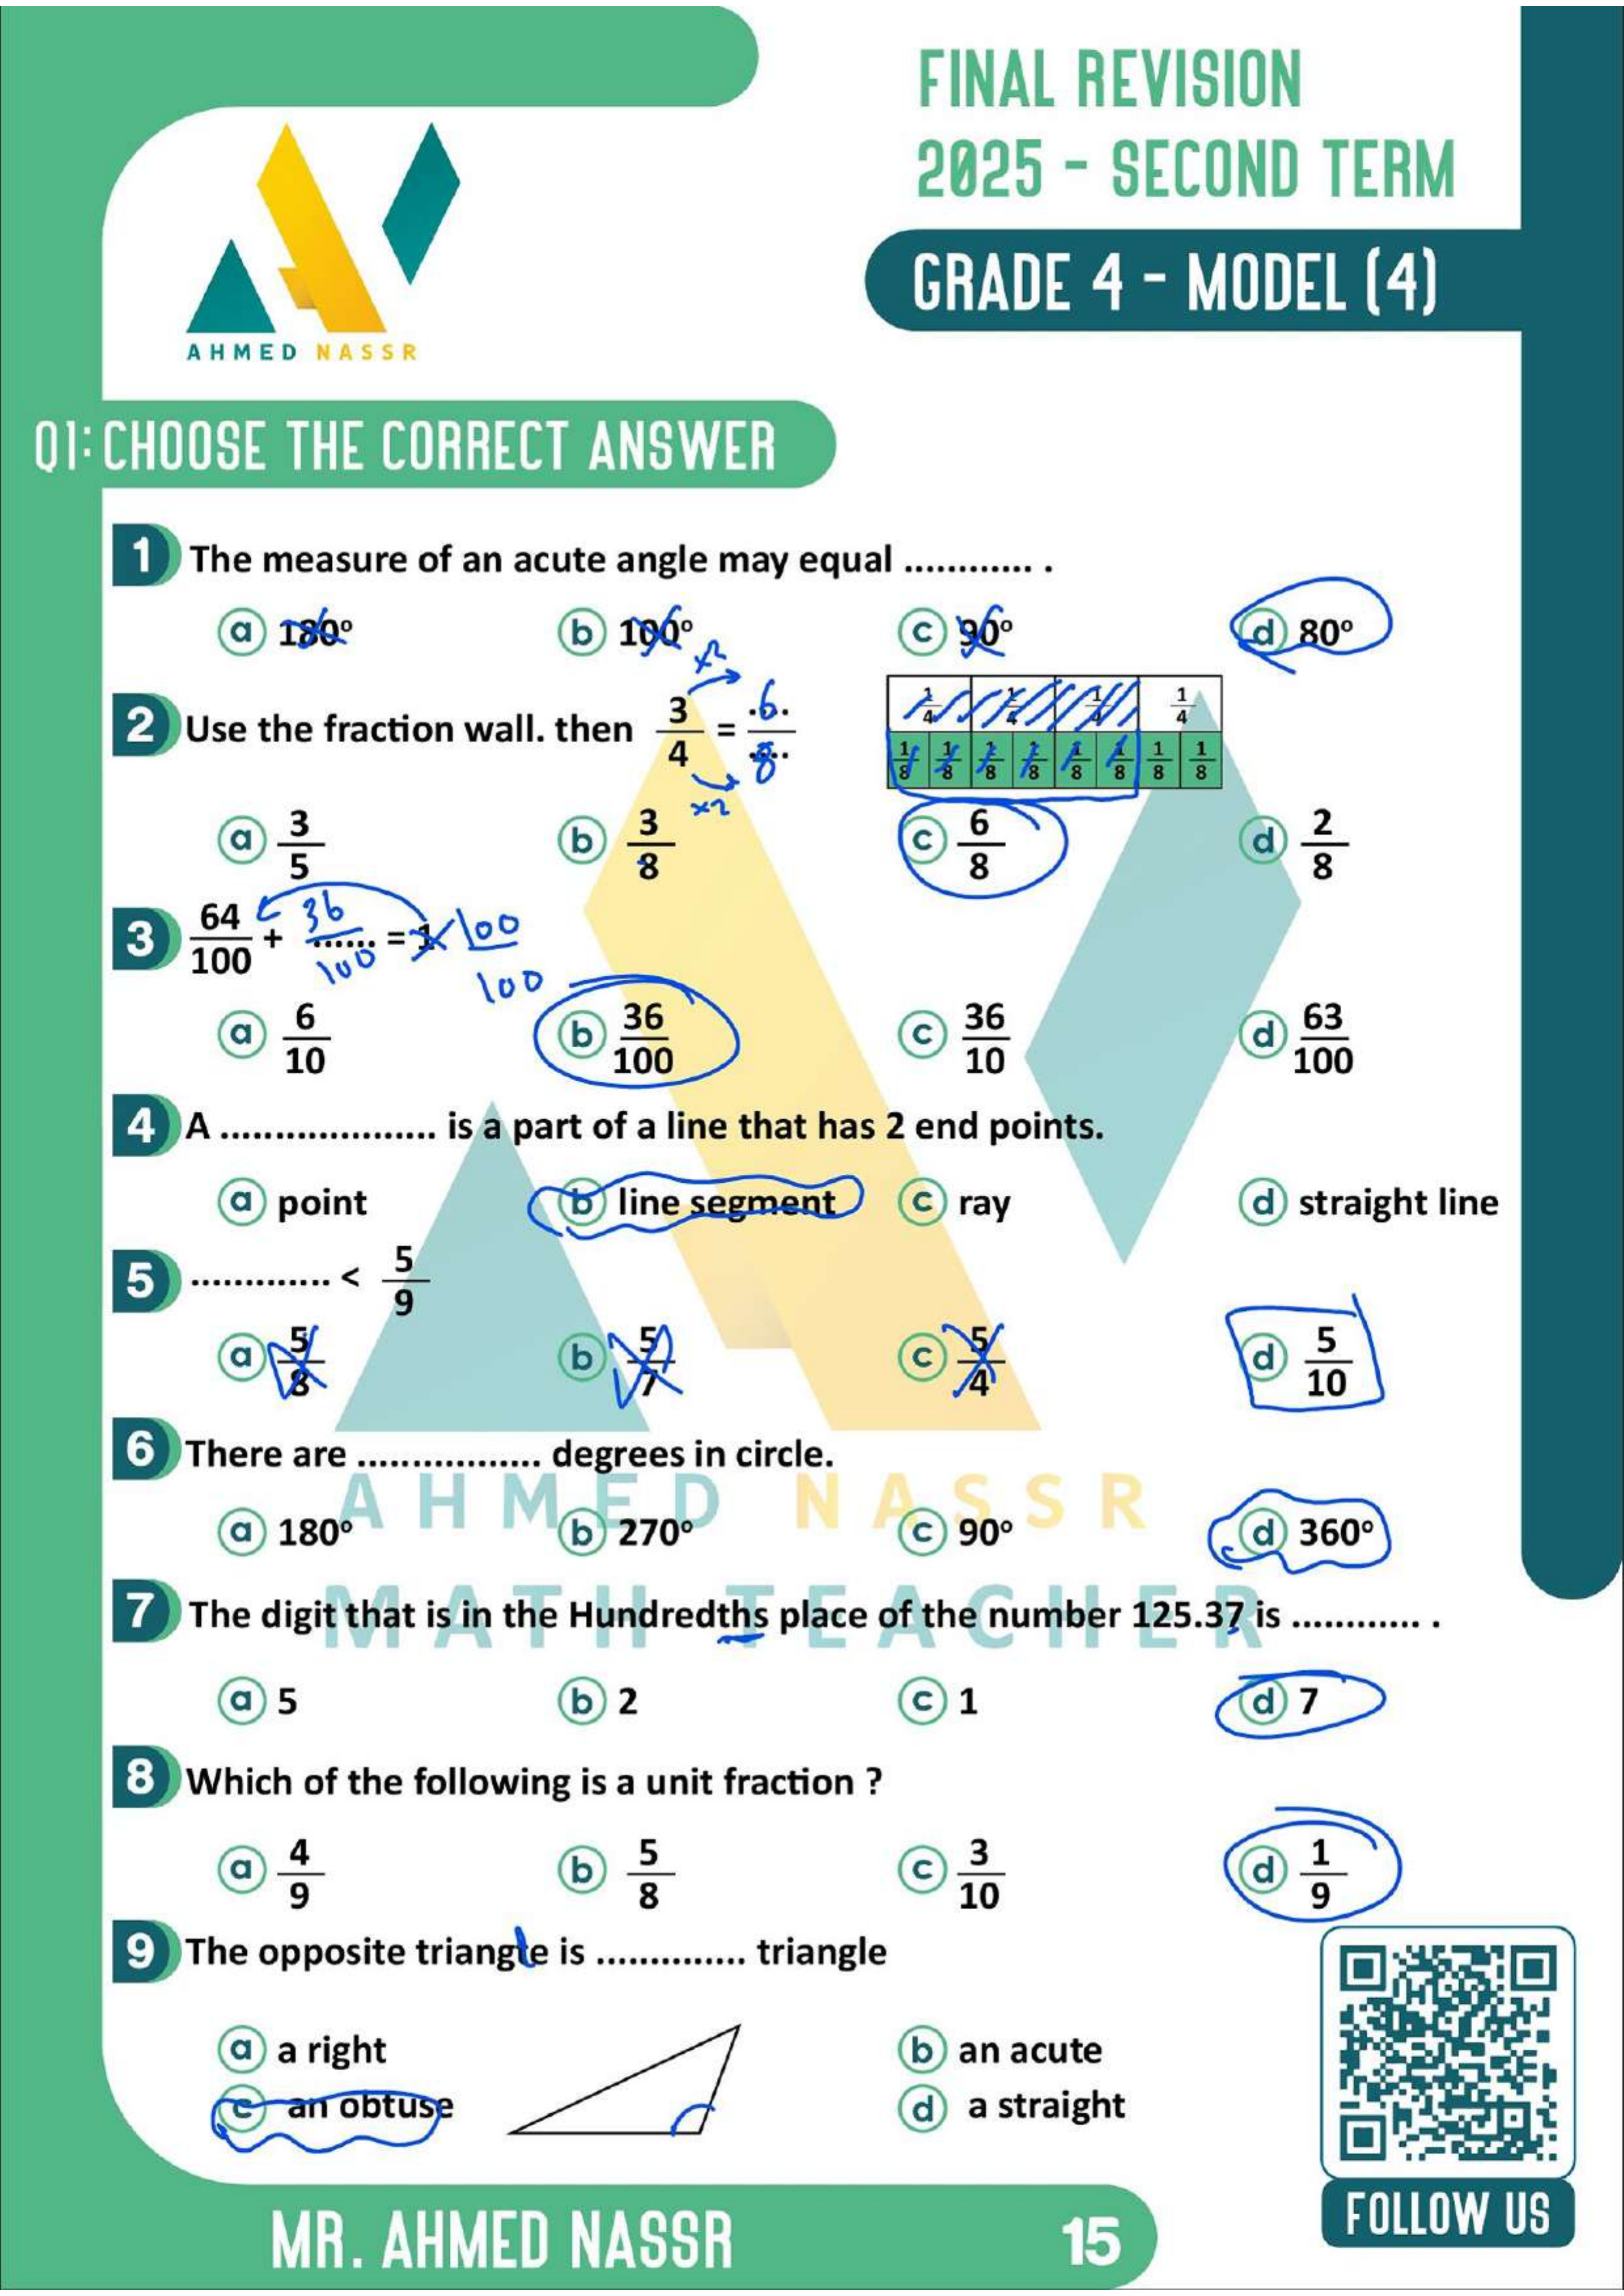 FINAL REVISION
2025 - SECOND TERM
GRADE 4 - MODEL (4)
AHMED NASSR
Q1: CHOOSE THE CORRECT ANSWER
1 The measure of an acute angle may equal ............ .
a 180° b 100° c 90° d 80°
×2
2 Use the fraction wall. then 3/4 = 6/8
1/4 1/4 1/4 1/4
1/8 1/8 1/8 1/8 1/8 1/8 1/8 1/8
×2
a 3/5 b 3/8 c 6/8 d 2/8
3 64/100 + 36/100 = 1 100/100
a 6/10 b 36/100 c 36/10 d 63/100
4 A .................... is a part of a line that has 2 end points.
a point b line segment c ray d straight line
5 ............. < 5/9
a 5/8 b 5/7 c 5/4 d 5/10
6 There are ................. degrees in circle.
AHMED NASSR
a 180° b 270° c 90° d 360°
MATH TEACHER
7 The digit that is in the Hundredths place of the number 125.37 is ............ .
a 5 b 2 c 1 d 7
8 Which of the following is a unit fraction ?
a 4/9 b 5/8 c 3/10 d 1/9
9 The opposite triangle is .............. triangle
a a right b an acute
c an obtuse d a straight
MR. AHMED NASSR 15
FOLLOW US